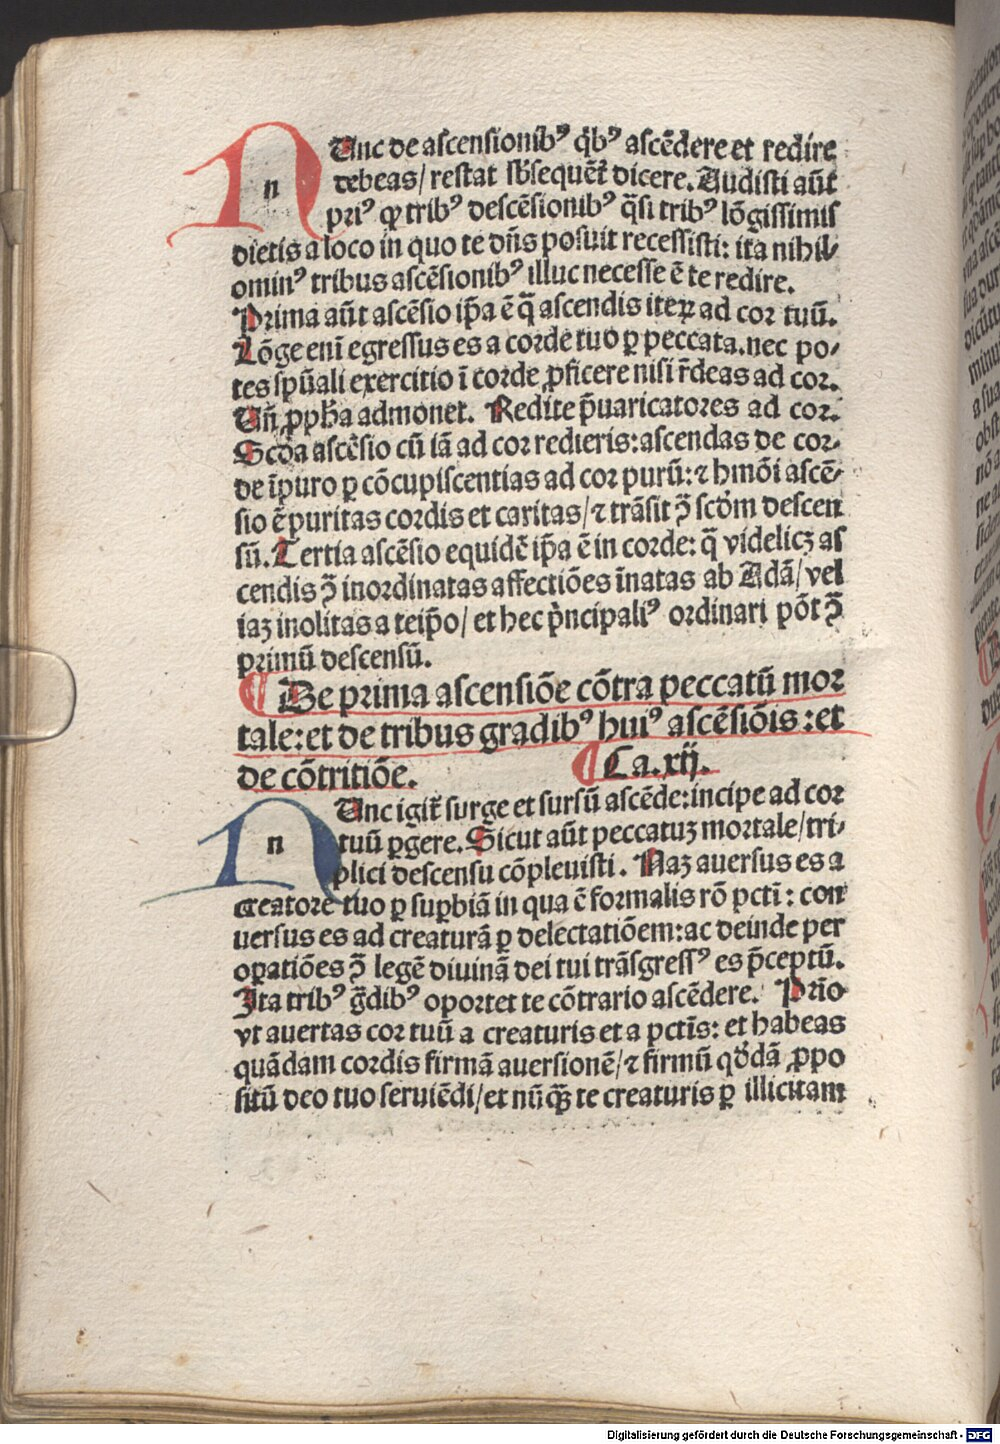 NUnc de ascensionibꝰ q̇bꝰ ascēdere et redire
debeas/ restat sb̄sequēt᷑ dicere. Audisti aūt
priꝰ ꝙ tribꝰ descēsionibꝰ q̄si tribꝰ lōgissimis
dietis a loco in quo te dn̄s posuit recessisti: ita nihil⸗
ominꝰ tribus ascēsionibꝰ illuc necesse ē te redire.
Prima aūt ascēsio ip̄a ē q̄ ascendis iteꝝ ad cor tuū.
Lōge enī egressus es a corde tuo ꝑ peccata. nec po⸗
tes spūali exercitio ī corde ꝓficere nisi r̄deas ad cor.
Vn̄ ꝓpħa admonet. Redite p̄uaricatores ad cor.
Scd̄a ascēsio cū iā ad cor redieris: ascendas de cor⸗
de īpuro ꝑ cōcupiscentias ad cor purū: ⁊ hmōi ascē⸗
sio ē puritas cordis et caritas/ ⁊ trāsit ↄ̄ scd̄m descen
sū. Tertia ascēsio equidē ip̄a ē in corde: q̄ videlicꝫ as
cendis ↄ̄ inordinatas affectiōes īnatas ab Adā/ vel
iaꝫ inolitas a teip̄o/ et hec p̄ncipaliꝰ ordinari pōt ↄ̄
primū descensū.
¶ De prima ascensiōe cōtra peccatū mor
tale: et de tribus gradibꝰ huiꝰ ascēsiōis: et
de cōtritiōe. ¶ Ca. xij.
NUnc igit᷑ surge et sursū ascēde: incipe ad cor
tuū ꝑgere. Sicut aūt peccatuꝫ mortale/ tri⸗
plici descensu cōpleuisti. Naꝫ auersus es a
creatore tuo ꝑ suꝑbiā in qua ē formalis rō pcti: con
uersus es ad creaturā ꝑ delectatiōem: ac deinde per
oꝑatiōes ↄ̄ legē diuinā dei tui trāsgressꝰ es p̄ceptū.
Ita tribꝰ ḡdibꝰ oportet te cōtrario ascēdere. Prīo
vt auertas cor tuū a creaturis et a pctīs: et habeas
quādam cordis firmā auersionē/ ⁊ firmū qōdā ꝓpo
sitū deo tuo seruiēdi/ et nūꝙ̄ te creaturis ꝑ illicitam
Digitalisierung gefördert durch die Deutsche Forschungsgemeinschaft - DFG